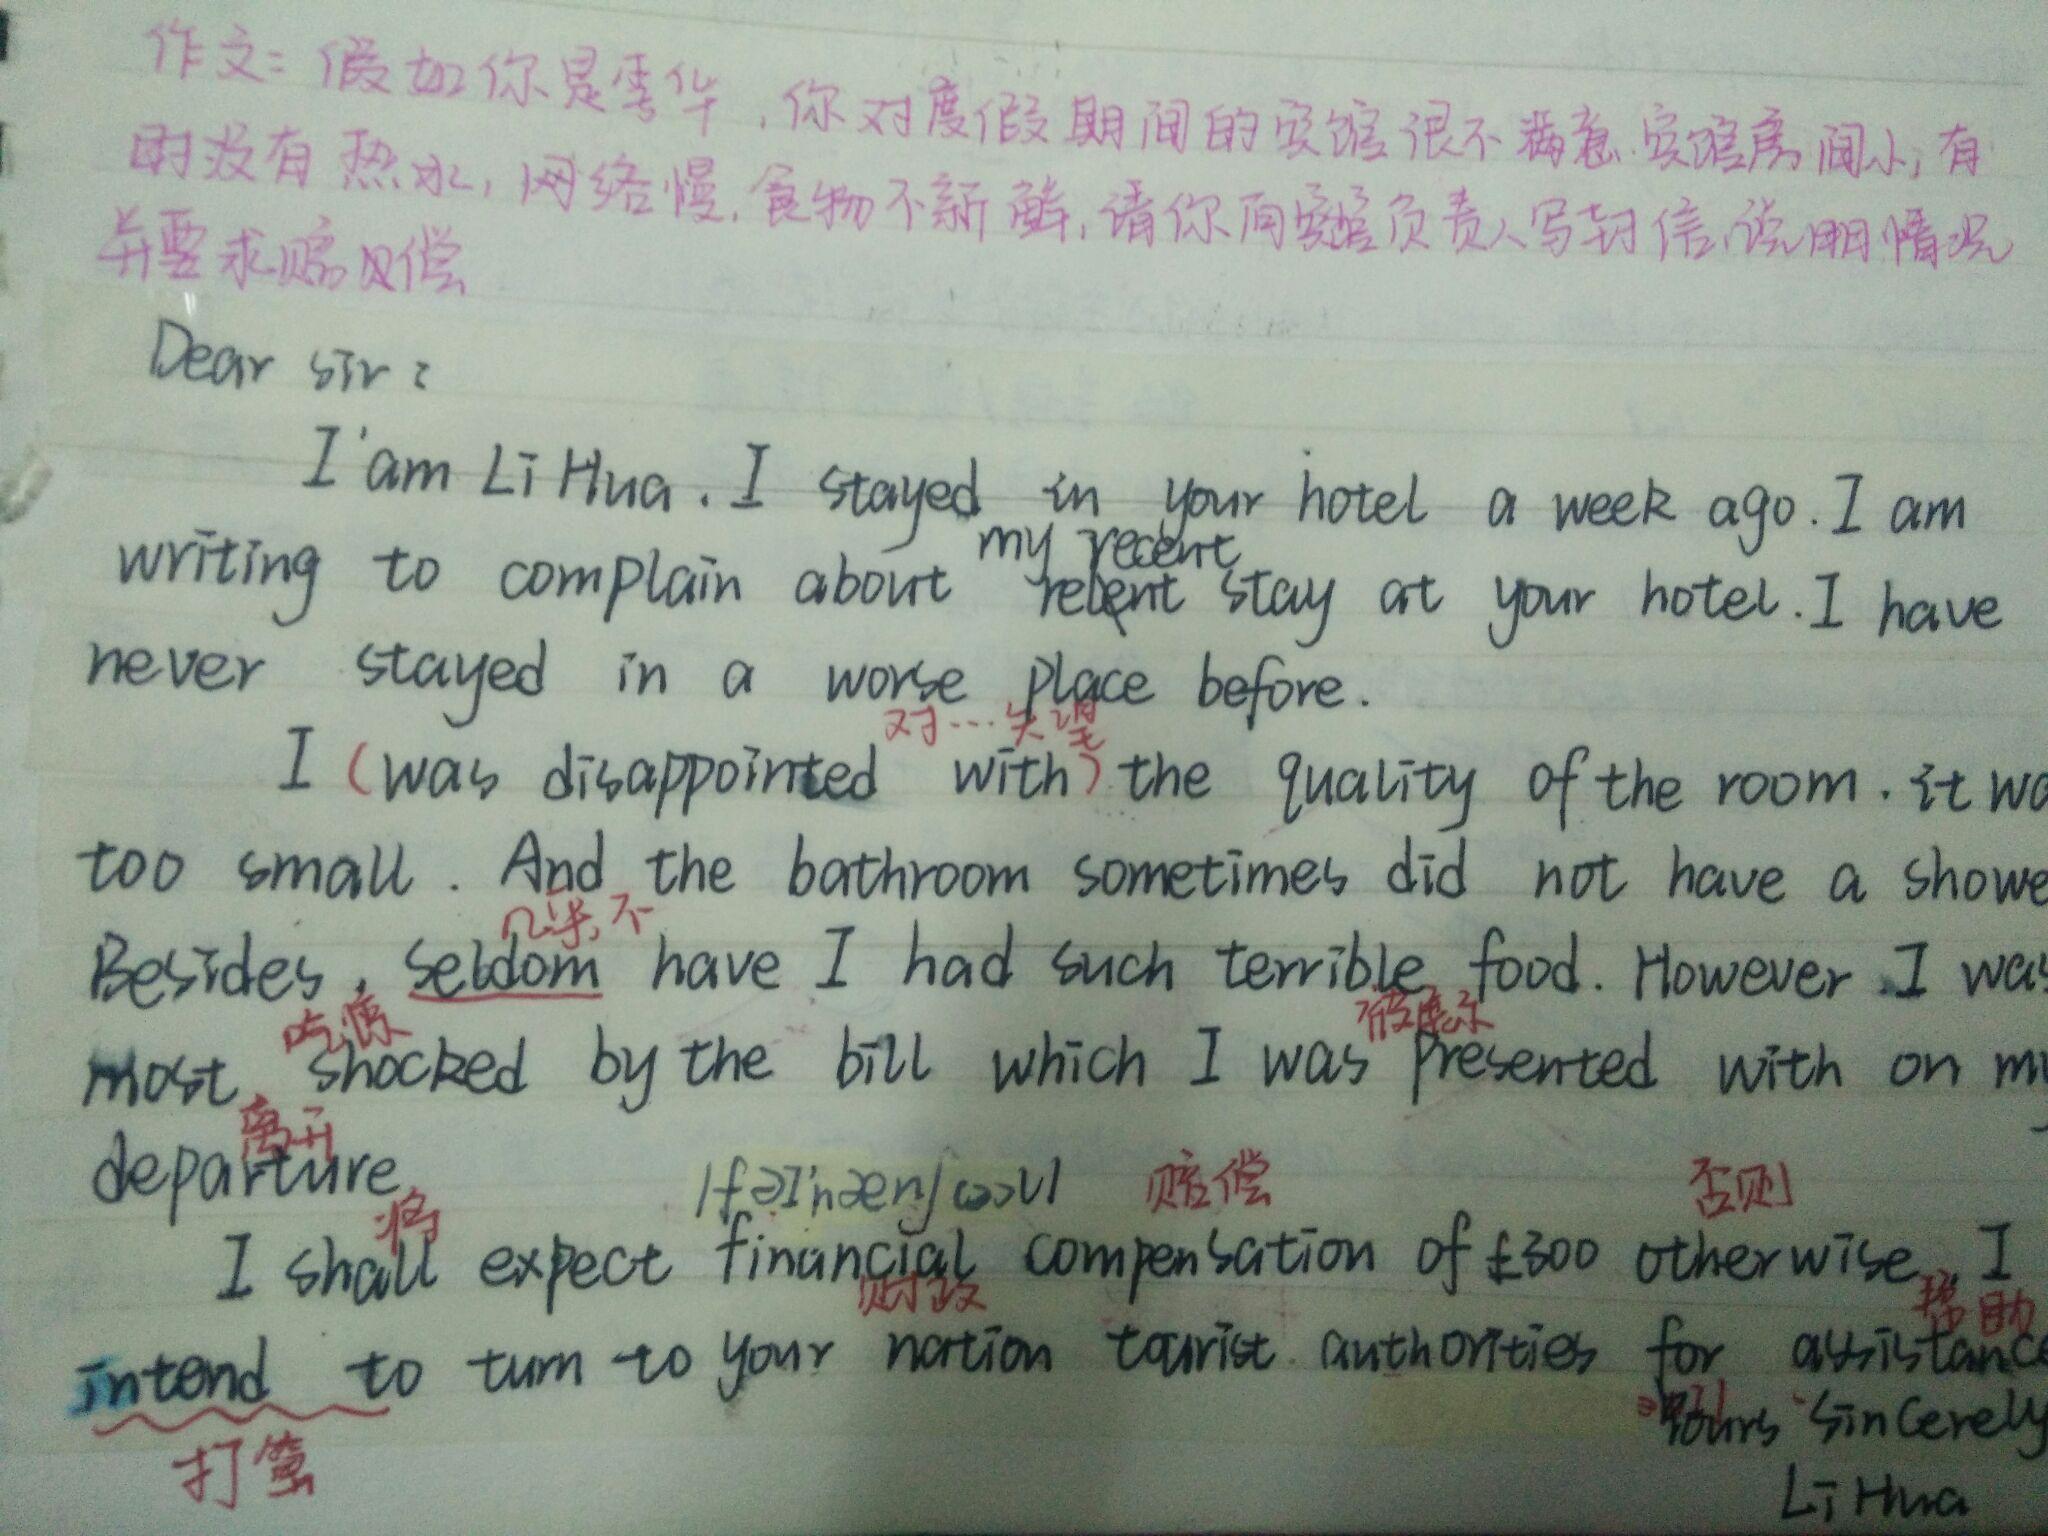 作文:假如你是李华,你对度假期间的宾馆很不满意.宾馆房间小,有
时没有热水,网络慢,食物不新鲜,请你向宾馆负责人写封信,说明情况
并要求赔偿
Dear sir:
I'am Li Hua. I stayed in your hotel a week ago. I am
my recent
writing to complain about recent stay at your hotel. I have
never stayed in a worse place before.
对…失望
I (was disappointed with) the quality of the room. it wa
too small. And the bathroom sometimes did not have a showe
几乎不
Besides, seldom have I had such terrible food. However I was
吃惊 被展示
most shocked by the bill which I was presented with on my
离开
departure
将 赔偿 否则
I shall expect financial compensation of £300 otherwise, I
财政 帮助
intend to turn to your nation tourist authorities for assistance
打算
Yours sincerely
Li Hua